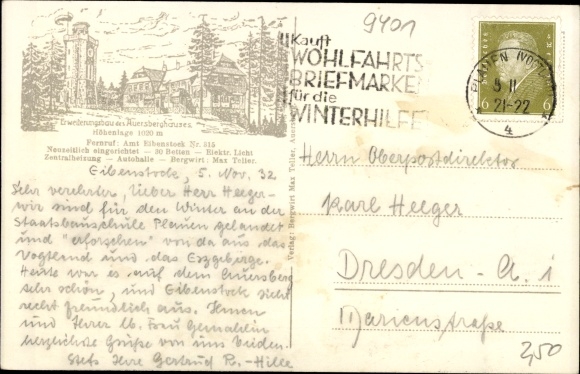 9401
Kauft
WOHLFAHRTS
BRIEFMARKEN
für die
WINTERHILFE
PLAUEN (VOGTL)
5 11
21-22
4
6 6
Erweiterungsbau des Auersberghauses
Höhenlage 1020 m
Fernruf: Amt Eibenstock Nr. 315
Neuzeitlich eingerichtet — 30 Betten — Elektr. Licht
Zentralheizung — Autohalle — Bergwirt: Max Teller.
Eibenstock, 5. Nov. 32
Sehr verehrter, lieber Herr Heeger-
wir sind für den Winter an der
Staatsbauschule Plauen gelandet
und "erforschen" von da aus das
Vogtland und das Erzgebirge.
Heute war es auf dem Auersberg
sehr schön, und Eibenstock sieht
recht freundlich aus. Ihnen
und Ihrer lb. Frau Gemahlin
herzliche Grüße von uns beiden.
Stets Ihre Gertrud R.-Hille
Verlag: Bergwirt Max Teller,
Herrn Oberpostdirektor
Karl Heeger
Dresden-A. 1
Marienstraße
2,50